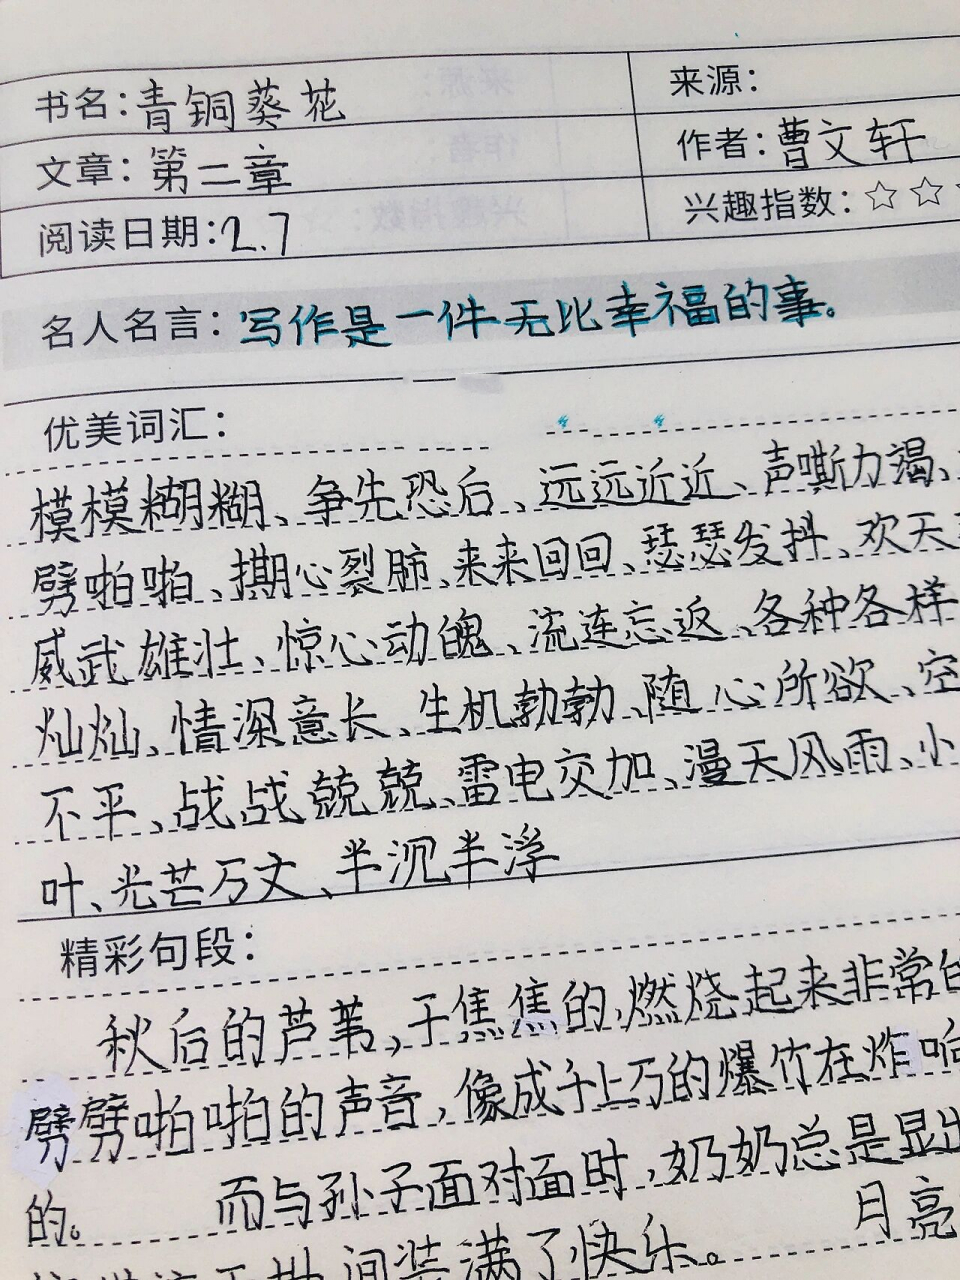 书名：青铜葵花
来源：
文章：第二章
作者：曹文轩
阅读日期：2.7
兴趣指数：☆☆
名人名言：写作是一件无比幸福的事。
优美词汇：
模模糊糊、争先恐后、远远近近、声嘶力竭、
劈啪啪、撕心裂肺、来来回回、瑟瑟发抖、欢天
威武雄壮、惊心动魄、流连忘返、各种各样
灿灿、情深意长、生机勃勃、随心所欲、空
不平、战战兢兢、雷电交加、漫天风雨、小
叶、光芒万丈、半沉半浮
精彩句段：
秋后的芦苇，干焦焦的，燃烧起来非常的
劈劈啪啪的声音，像成千上万的爆竹在炸响
的。 而与孙子面对面时，奶奶总是显出
间装满了快乐。 月亮